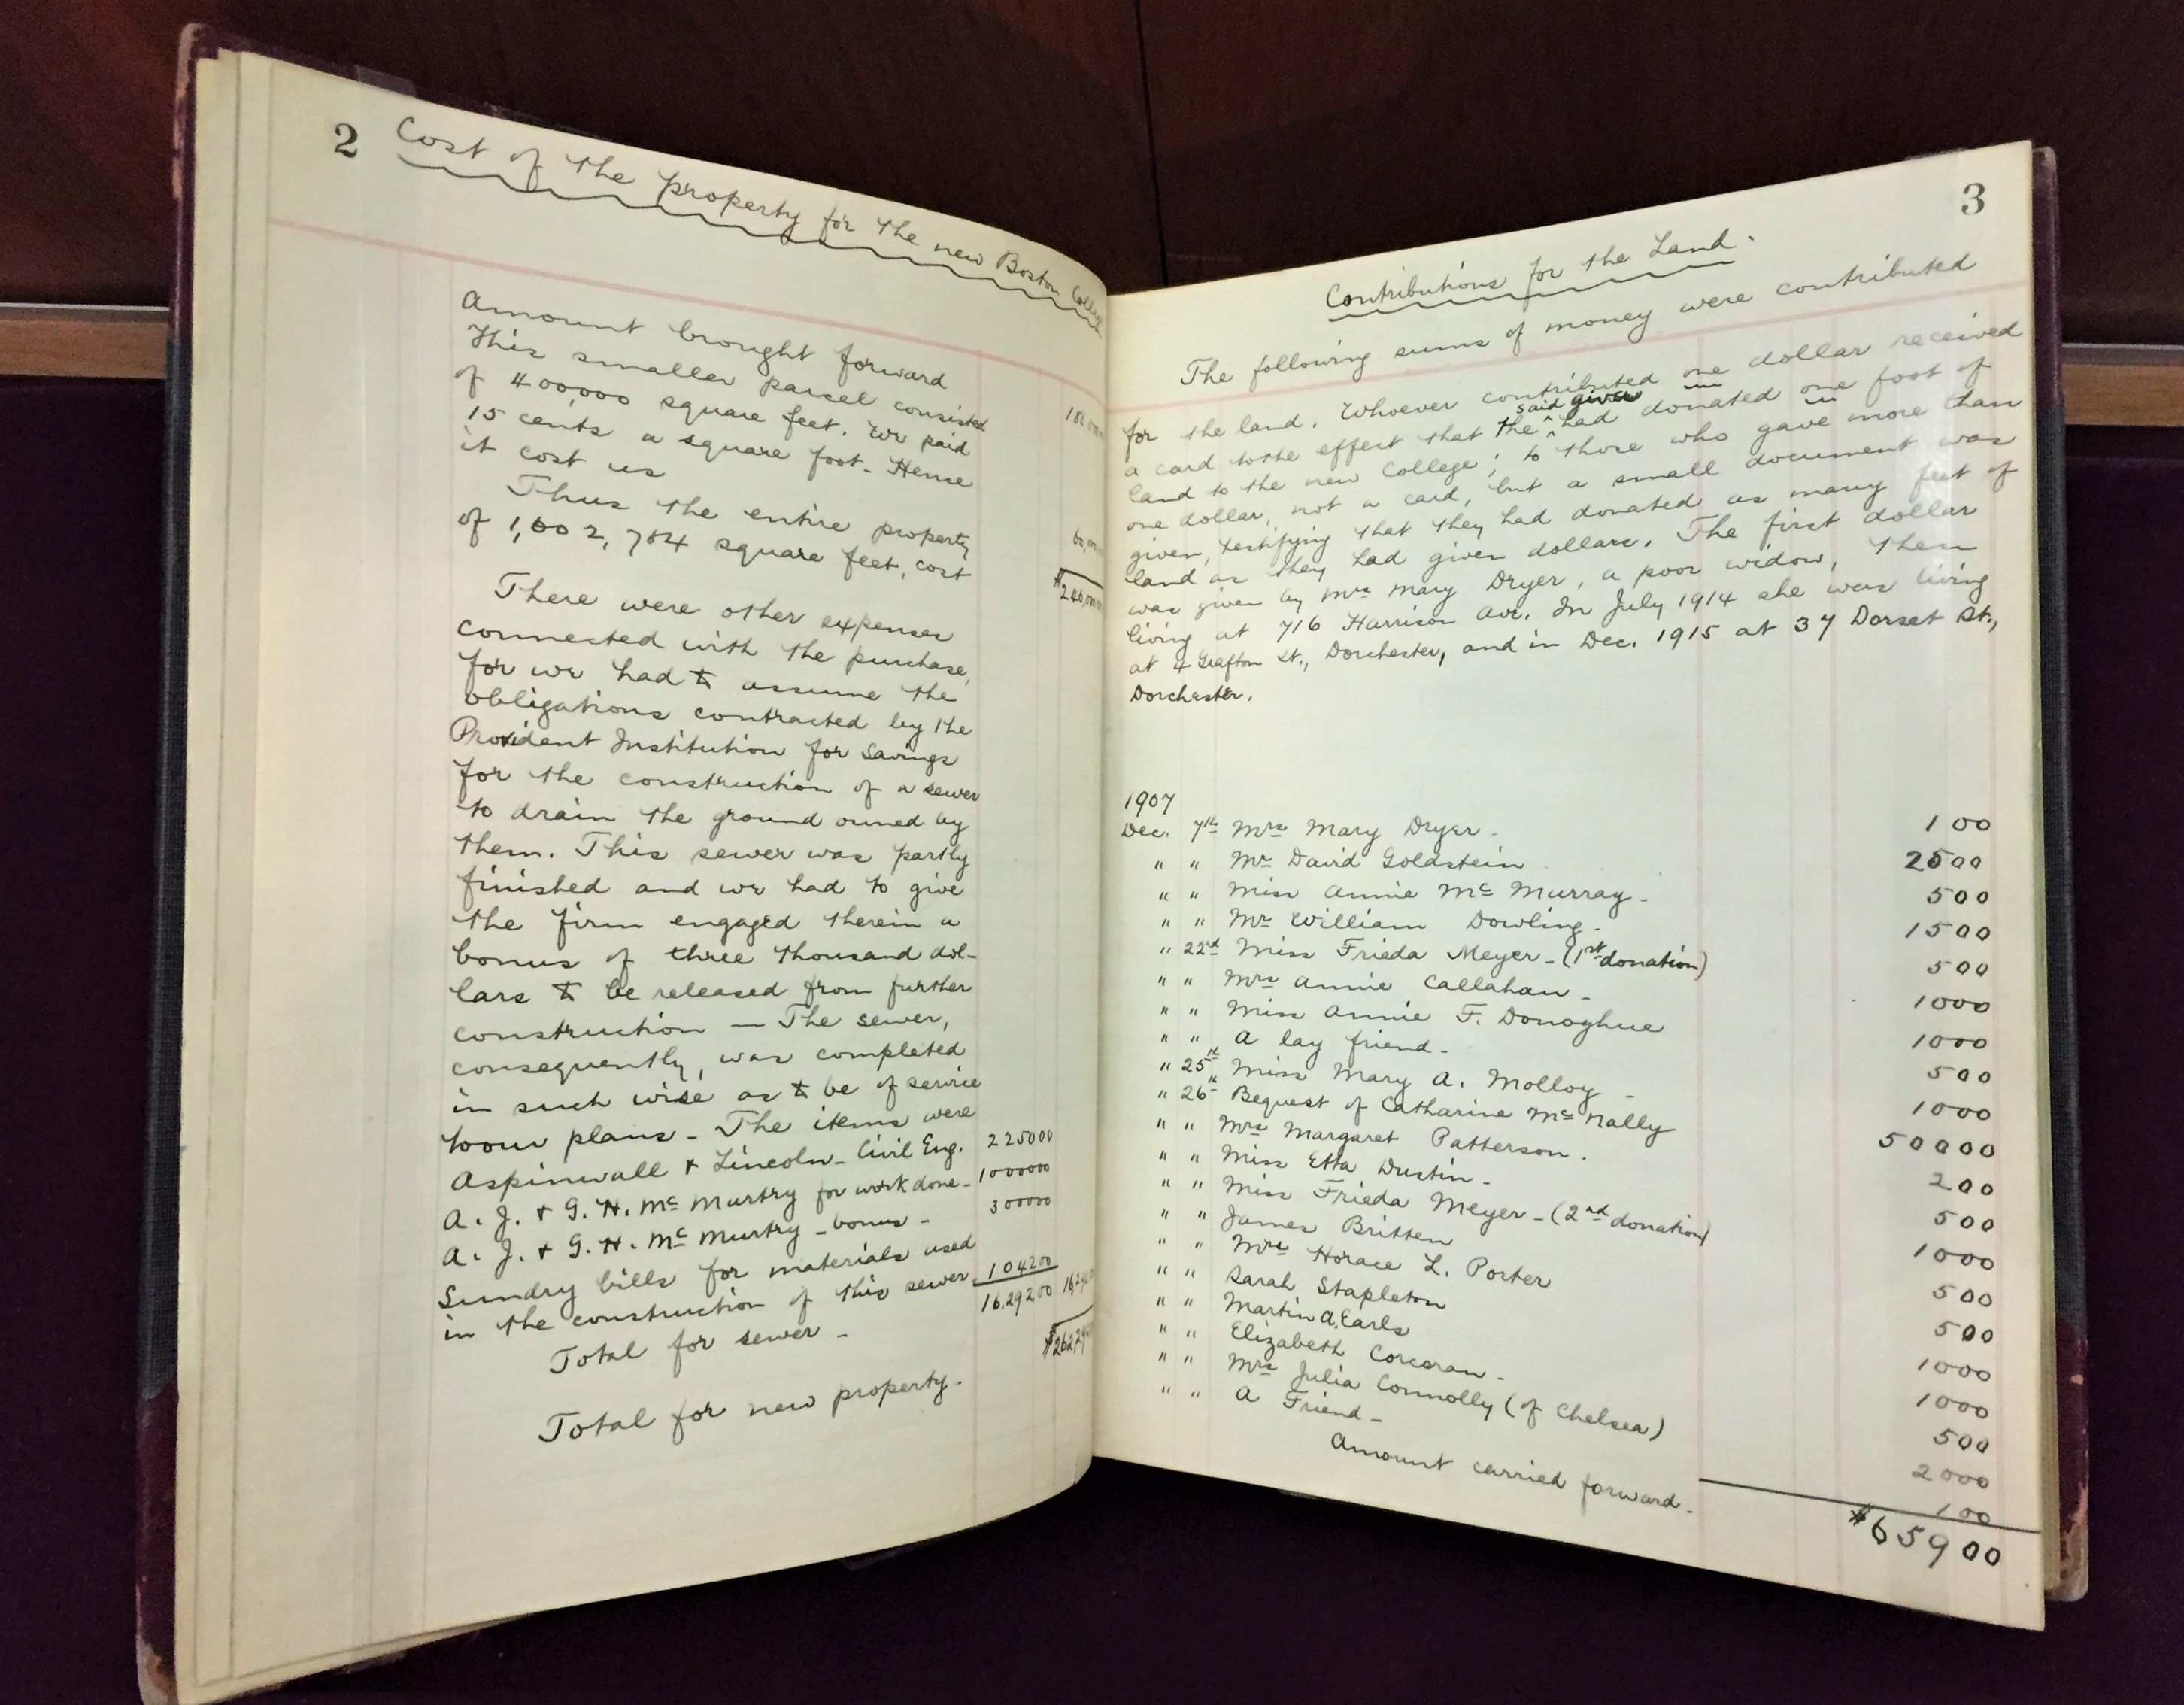 2
Cost of the property for the new Boston College
Amount brought forward
This smaller parcel consisted
of 400,000 square feet. We paid
15 cents a square foot. Hence
it cost us
Thus the entire property
of 1,602,784 square feet, cost
There were other expenses
connected with the purchase,
for we had to assume the
obligations contracted by the
Provident Institution for Savings
for the construction of a sewer
to drain the ground owned by
them. This sewer was partly
finished and we had to give
the firm engaged therein a
bonus of three thousand dol-
lars to be released from further
construction — The sewer,
consequently, was completed
in such wise as to be of service
to our plans - The items were
Aspinwall & Lincoln - Civil Eng. 225000
A. J. & G. H. McMurtry for work done - 1000000
A. J. & G. H. McMurtry - bonus - 300000
Sundry bills for materials used
in the construction of this sewer 104200
Total for sewer - 16,29200
Total for new property.
3
Contributions for the Land.
The following sums of money were contributed
for the land. Whoever contributed one dollar received
a card to the effect that the said giver had donated one foot of
land to the new College; to those who gave more than
one dollar, not a card, but a small document was
given, testifying that they had donated as many feet of
land as they had given dollars. The first dollar
was given by Mrs Mary Dryer, a poor widow, then
living at 716 Harrison Ave. In July 1914 she was living
at 4 Grafton St., Dorchester, and in Dec. 1915 at 37 Dorset St.,
Dorchester.
1907
Dec. 7th Mrs Mary Dryer - 1 00
" " Mr David Goldstein 25 00
" " Miss Annie McMurray - 5 00
" " Mr William Dowling - 15 00
" 22nd Miss Frieda Meyer - (1st donation) 5 00
" " Mrs Annie Callahan - 10 00
" " Miss Annie F. Donoghue 10 00
" " A lay friend - 5 00
" 25th Miss Mary A. Molloy - 10 00
" 26th Bequest of Catharine McNally 500 00
" " Mrs Margaret Patterson. 2 00
" " Miss Etta Dustin - 5 00
" " Miss Frieda Meyer - (2nd donation) 10 00
" " James Britten 5 00
" " Mrs Horace L. Porter 5 00
" " Sarah Stapleton 10 00
" " Martin A. Earls 10 00
" " Elizabeth Corcoran - 5 00
" " Mrs Julia Connolly (of Chelsea) 20 00
" " A Friend - 1 00
Amount carried forward - $659 00